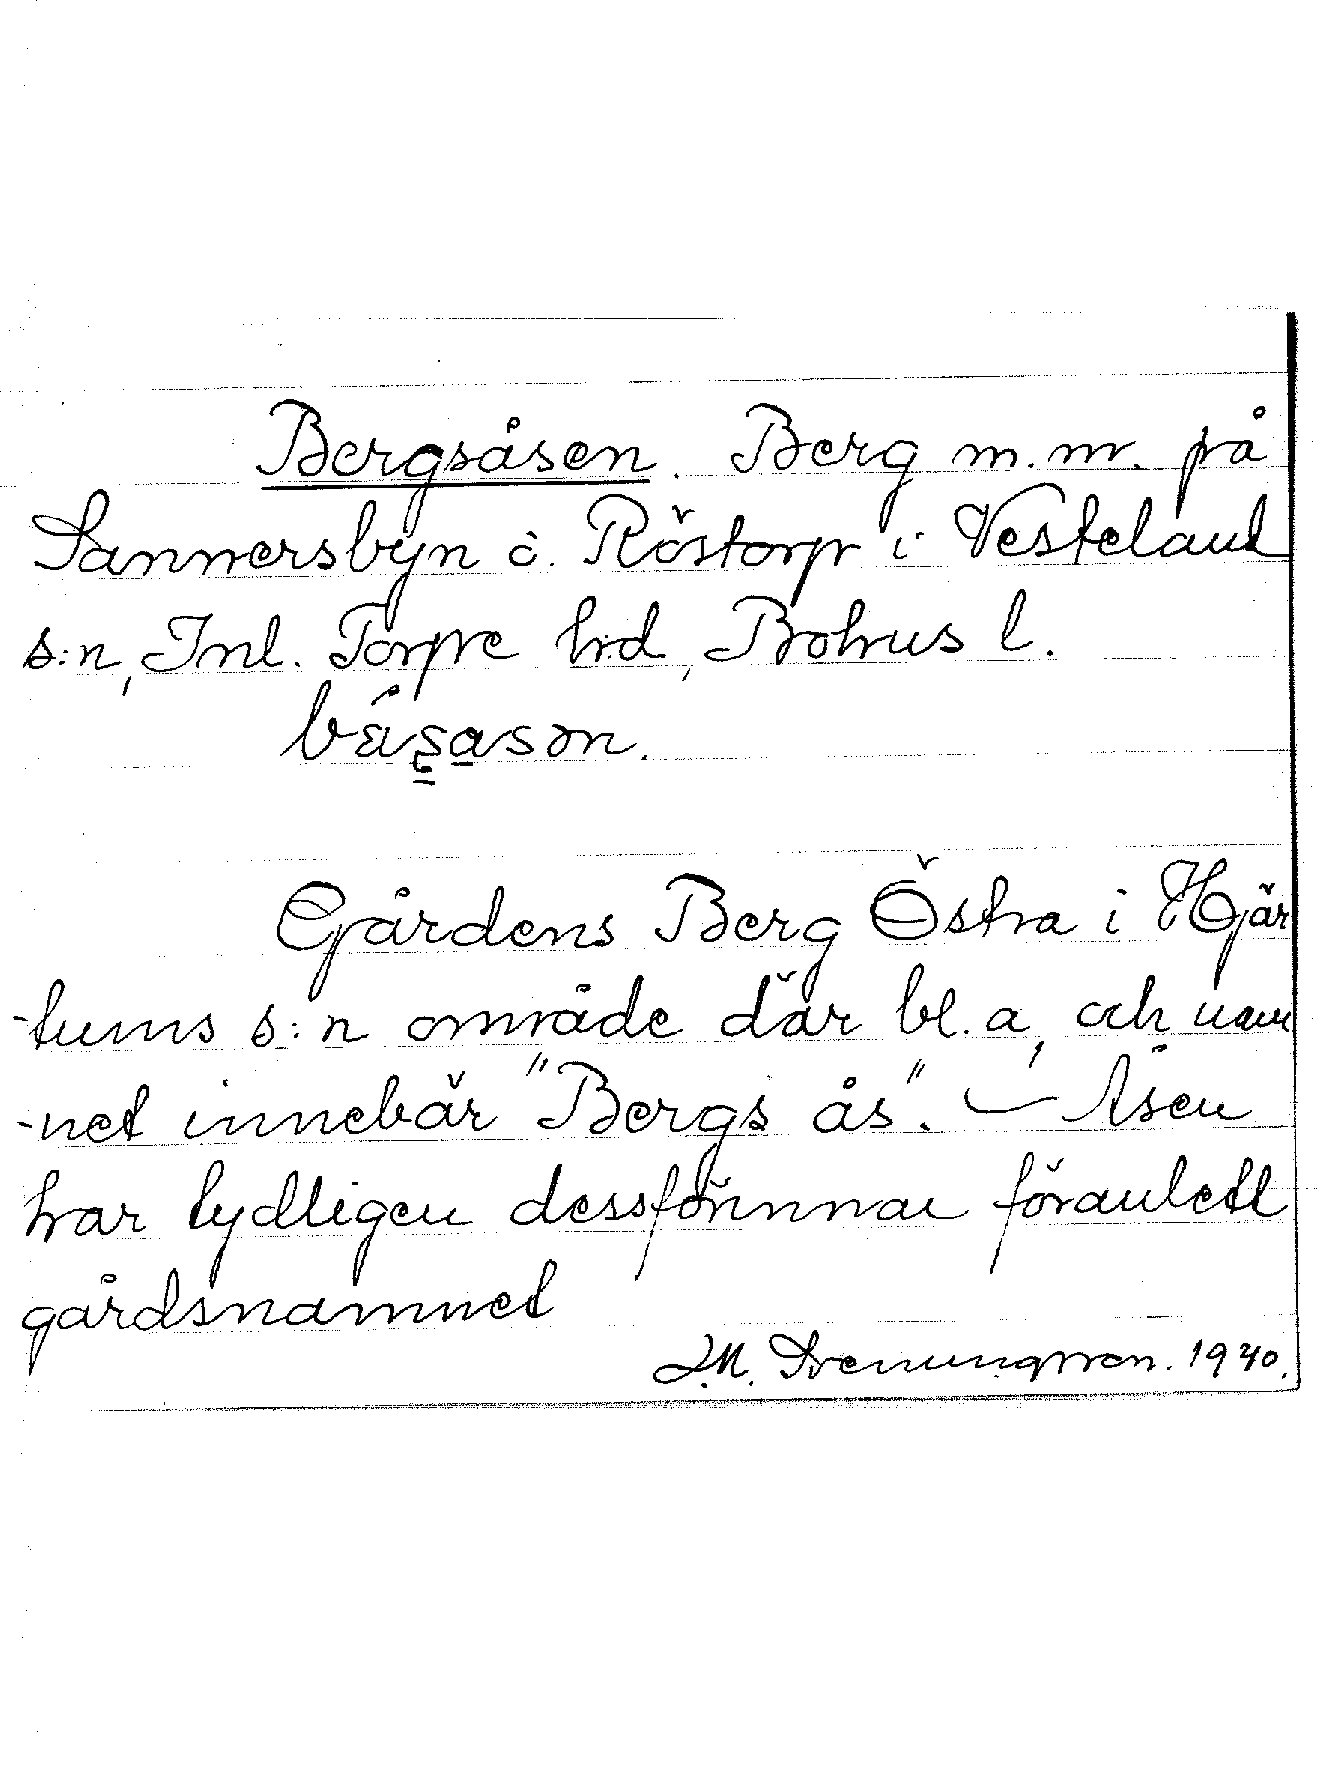 Bergsåsen. Berg m.m. på
Sannersbyn o. Röstorp i Vesteland
s:n, Inl. Torpe h:d, Bohus l.
Gårdens Berg Östra i Hjär
-tums s:n område där bl.a, och nam
-net innebär "Bergs ås". — Åsen
har tydligen dessförinnan föranlett
gårdsnamnet
1940.